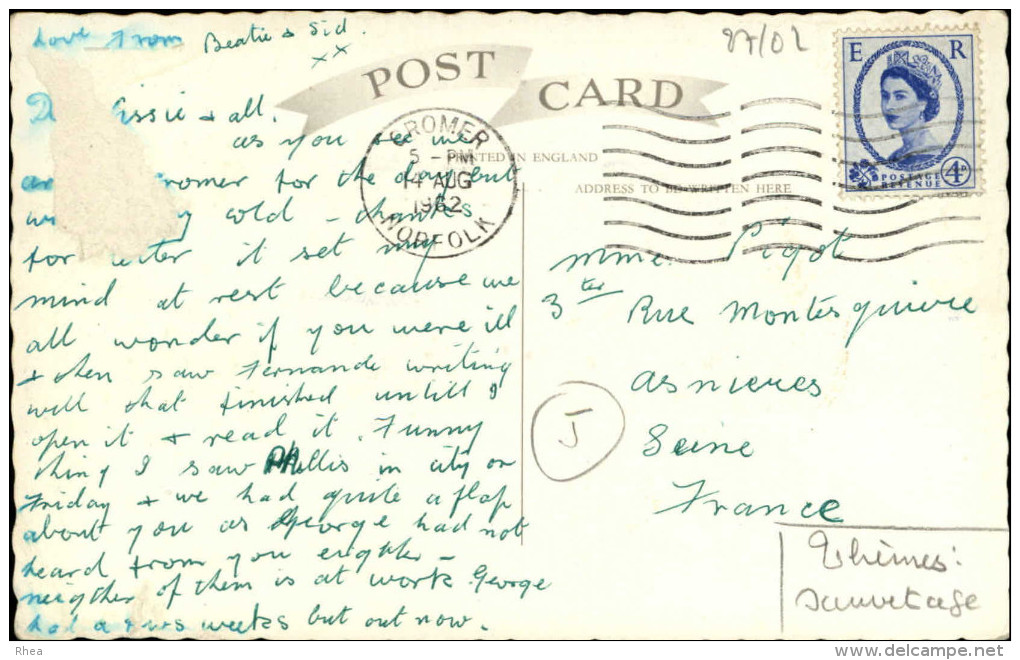 love from Beatie & Sid.
xx
27/02
POST CARD
E R
POSTAGE REVENUE 4D
CROMER
5 - PM
14 AUG
1962
NORFOLK
PRINTED IN ENGLAND
ADDRESS TO BE WRITTEN HERE
issie & all.
as you see we
Cromer for the day but
cold - thanks
for letter it set my
mind at rest because we
all wonder if you were ill
& then saw Fernande writing
well that finished untill I
open it & read it. Funny
thing I saw Phillis in city on
Friday & we had quite a flap
about you as George had not
heard from you eighter -
neigther of them is at work George
had a weeks but out now.
Mme. Pigot
3 ter Rue Montesquieu
Asnieres
Seine
France
J
Thèmes:
sauvetage
© Rhea
www.delcampe.net